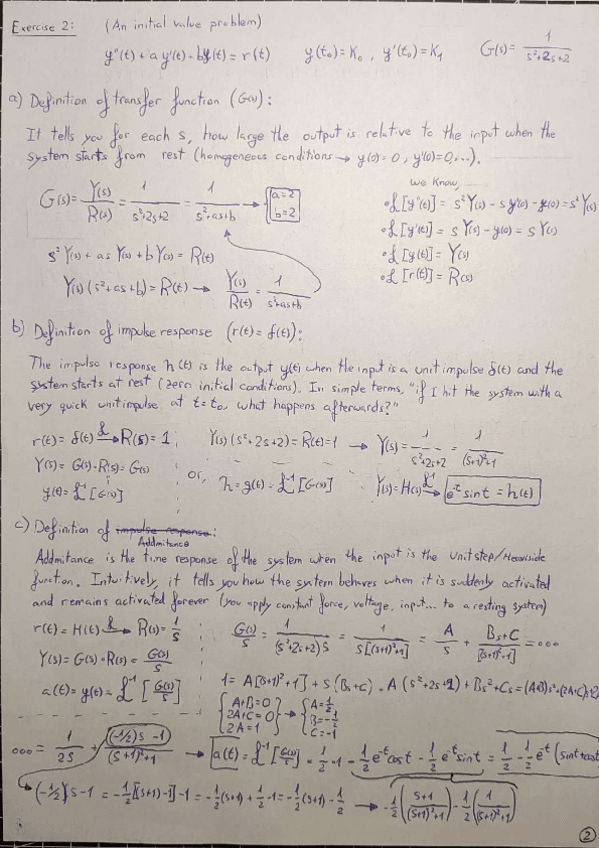 Exercise 2: (An initial value problem)
y''(t) + a y'(t) + by(t) = r(t)   y(t₀) = K₀ , y'(t₀) = K₁   G(s) = 1/(s²+2s+2)
a) Definition of transfer function (G(s)):
It tells you for each s, how large the output is relative to the input when the
system starts from rest (homogeneous conditions → y(0) = 0, y'(0) = 0,...).
we know,
G(s) = Y(s)/R(s) = 1/(s²+2s+2) = 1/(s²+as+b) → a=2 b=2
• ℒ[y''(t)] = s²Y(s) - s y(0) - y(0) = s²Y(s)
• ℒ[y'(t)] = s Y(s) - y(0) = s Y(s)
• ℒ[y(t)] = Y(s)
• ℒ[r(t)] = R(s)
s² Y(s) + as Y(s) + b Y(s) = R(t)
Y(s) (s² + as + b) = R(t) → Y(s)/R(t) = 1/(s²+as+b)
b) Definition of impulse response (r(t) = δ(t)):
The impulse response h(t) is the output y(t) when the input is a unit impulse δ(t) and the
system starts at rest (zero initial conditions). In simple terms, "if I hit the system with a
very quick unit impulse at t=t₀, what happens afterwards?"
r(t) = δ(t) →ℒ R(s) = 1;   Y(s) (s²+2s+2) = R(t) = 1 → Y(s) = 1/(s²+2s+2) = 1/((s+1)²+1)
Y(s) = G(s)·R(s) = G(s)
y(t) = ℒ⁻¹[G(s)]   or, h = g(t) = ℒ⁻¹[G(s)]   Y(s) = H(s) →ℒ⁻¹ e⁻ᵗ sin t = h(t)
c) Definition of impulse response:
Addmitance
Addmitance is the time response of the system when the input is the unit step/Heaviside
function. Intuitively, it tells you how the system behaves when it is suddenly activated
and remains activated forever (you apply constant force, voltage, input... to a resting system)
r(t) = H(t) →ℒ R(s) = 1/s   G(s)/s = 1/((s²+2s+2)s) = 1/(s[(s+1)²+1]) = A/s + (Bs+C)/[(s+1)²+1] = ...
Y(s) = G(s)·R(s) = G(s)/s
a(t) = y(t) = ℒ⁻¹[G(s)/s]   1 = A[(s+1)²+1] + s(Bs+C) = A(s²+2s+2) + Bs²+Cs = (A+B)s²+(2A+C)s+2A
{A+B=0 2A+C=0 2A=1 → {A=1/2 B=-1/2 C=-1
... = 1/2s + ((-1/2)s - 1)/((s+1)²+1) → a(t) = ℒ⁻¹[G(s)/s] = 1/2·1 - 1/2 e⁻ᵗcost - 1/2 e⁻ᵗsint = 1/2 - 1/2 e⁻ᵗ(sint+cost
(-1/2)s - 1 = -1/2[(s+1)-1] - 1 = -1/2(s+1) + 1/2 - 1 = -1/2(s+1) - 1/2 → -1/2((s+1)/((s+1)²+1)) - 1/2(1/((s+1)²+1))
2